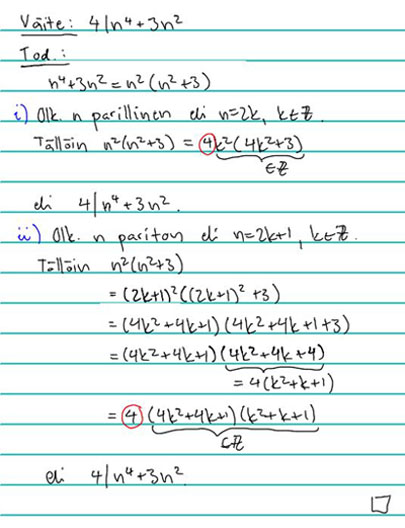 Väite: 4|n⁴+3n²
Tod.:
n⁴+3n²=n²(n²+3)
i) Olk. n parillinen eli n=2k, k∈ℤ.
Tällöin n²(n²+3) = 4k²(4k²+3)
∈ℤ
eli 4|n⁴+3n².
ii) Olk. n pariton eli n=2k+1, k∈ℤ.
Tällöin n²(n²+3)
=(2k+1)²((2k+1)²+3)
=(4k²+4k+1)(4k²+4k+1+3)
=(4k²+4k+1)(4k²+4k+4)
=4(k²+k+1)
=4(4k²+4k+1)(k²+k+1)
∈ℤ
eli 4|n⁴+3n².
□